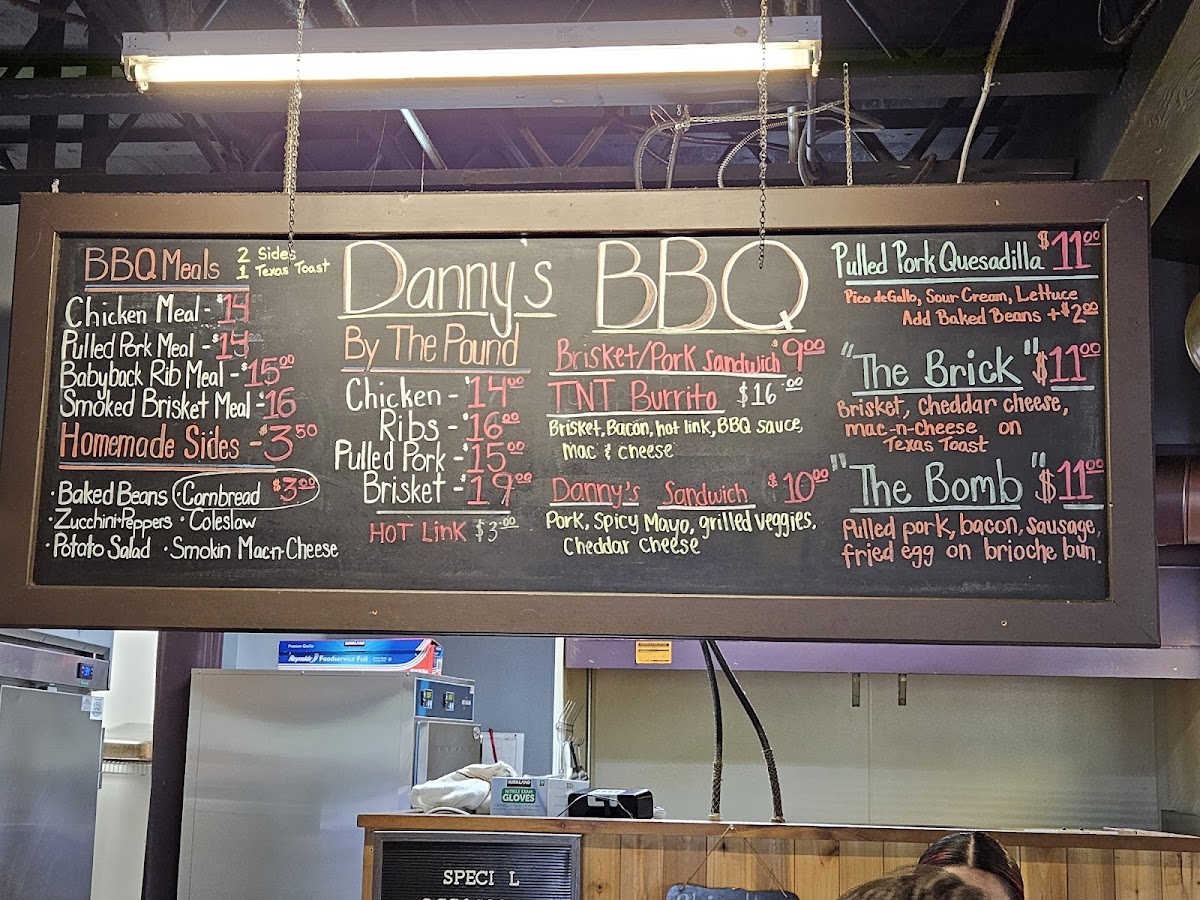 BBQ Meals 2 Sides
1 Texas Toast
Chicken Meal - $14
Pulled Pork Meal - $14
Babyback Rib Meal - $15.00
Smoked Brisket Meal - $16
Homemade Sides - $3.50
• Baked Beans • Cornbread $3.00
• Zucchini+Peppers • Coleslaw
• Potato Salad • Smokin Mac-n-Cheese
Danny's BBQ
By The Pound
Chicken - $14.00
Ribs - $16.00
Pulled Pork - $15.00
Brisket - $19.00
HOT LINK $3.00
Brisket/Pork Sandwich $9.00
TNT Burrito $16.00
Brisket, Bacon, hot link, BBQ sauce,
Mac & cheese
Danny's Sandwich $10.00
Pork, Spicy Mayo, grilled veggies,
Cheddar Cheese
Pulled Pork Quesadilla $11.00
Pico deGallo, Sour Cream, Lettuce
Add Baked Beans +$2.00
"The Brick" $11.00
Brisket, Cheddar cheese,
mac-n-cheese on
Texas Toast
"The Bomb" $11.00
Pulled pork, bacon, sausage,
fried egg on brioche bun.
KIRKLAND
Reynolds Foodservice Foil
KIRKLAND
NITRILE EXAM
GLOVES
SPECI L